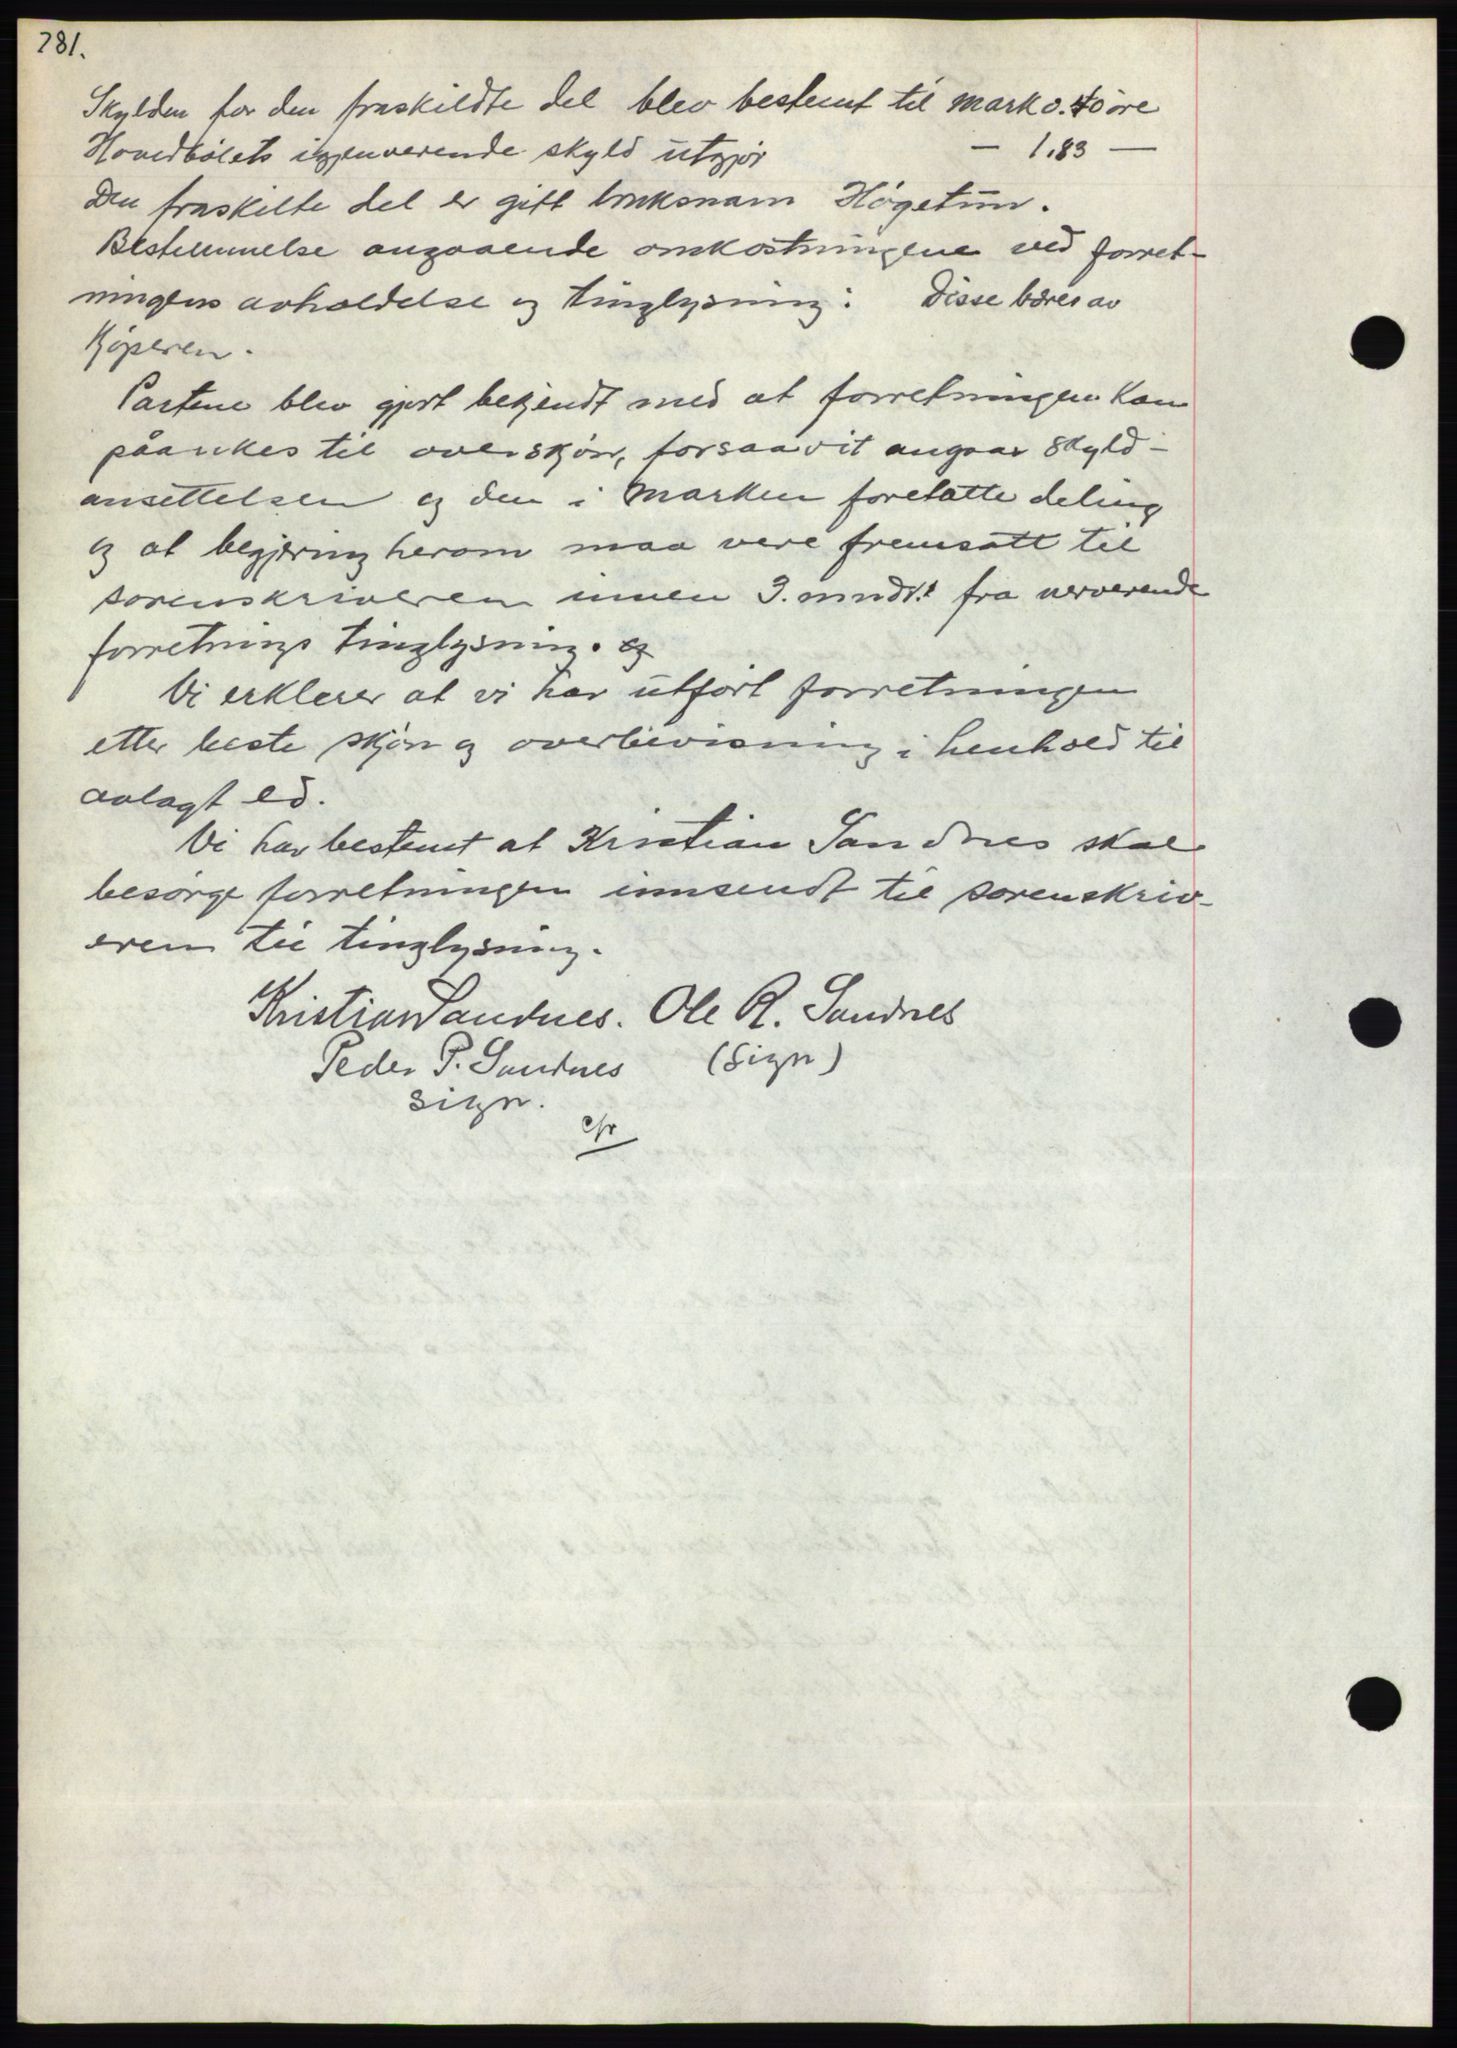 281.
Skylden for den fraskildte del blev bestemt til mark 0.40 øre
Hovedbølets igjenverende skyld utgjør — 1,83 —
Den fraskilte del er gitt bruksnavn Høgetun.
Bestemmelse angaaende omkostningene ved forret-
ningens avholdelse og tinglysning: Disse bæres av
Kjøperen.
Partene blev gjort bekjendt med at forretningen kan
påankes til overskjøn, forsaavit angaar skyld-
ansettelsen og den i marken foretatte deling
og at begjæring herom maa være fremsatt til
sorenskriveren innen 3. mndr. fra nerverende
forretnings tinglysning. og
Vi erklerer at vi har utført forretningen
etter beste skjøn og overbevisning i henhold til
avlagt ed.
Vi har bestemt at Kristian Sandnes skal
besørge forretningen innsendt til sorenskriv-
eren til tinglysning.
Kristian Sandnes. Ole R. Sandnes
Peder P. Sandnes (sign)
sign.